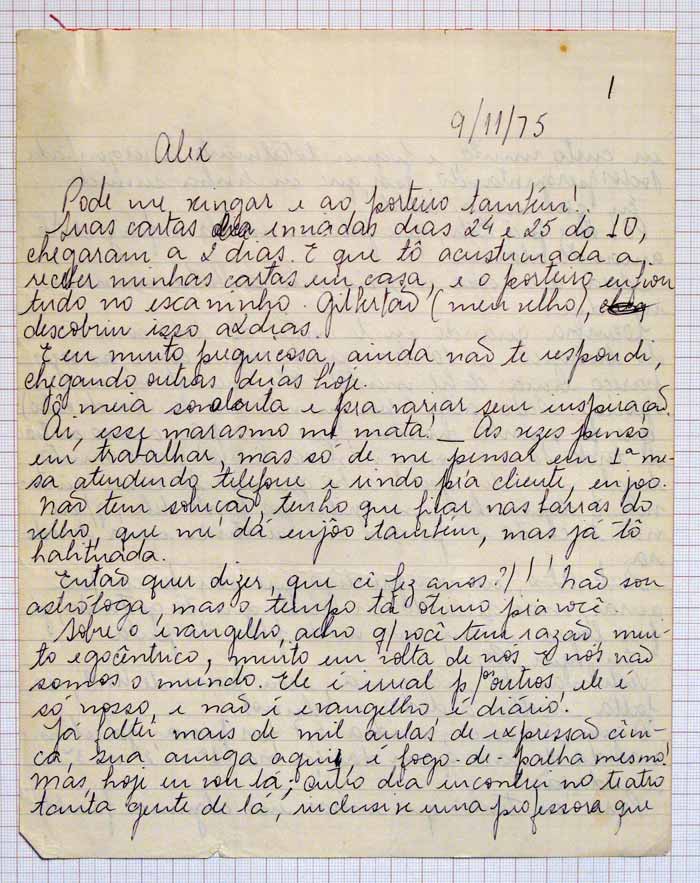 1
9/11/75
Alex
Pode me xingar e ao porteiro também!
Suas cartas enviadas dias 24 e 25 do 10,
chegaram a 2 dias. É que tô acustumada a
receber minhas cartas em casa, e o porteiro enfiou
tudo no escaninho. Gilbertão (meu velho),
descobriu isso a 2 dias.
E eu muito preguiçosa, ainda não te respondi,
chegando outras duas hoje.
Tô meia sonolenta e pra variar sem inspiração.
Ai, esse marasmo me mata! _ Às vezes penso
em trabalhar, mas só de me pensar em 1ª me-
sa atendendo telefone e rindo pra cliente, enjoo.
Não tem solução, tenho que ficar nas barras do
velho, que me dá enjôo também, mas já tô
habituada.
Então quer dizer, que cê fez anos?!!! Não sou
astróloga, mas o tempo tá ótimo pra você
Sobre o evangelho, acho q/ você tem razão, mui-
to egocêntrico, muito em volta de nós e nós não
somos o mundo. Ele é irreal p/ os outros, ele é
só nosso, e não é evangelho é diário.
Já faltei mais de mil aulas de expressão cêni-
ca, sua amiga aqui, é fogo-de-palha mesmo!
Mas, hoje eu vou lá; outro dia encontrei no teatro
tanta gente de lá, inclusive uma professora que